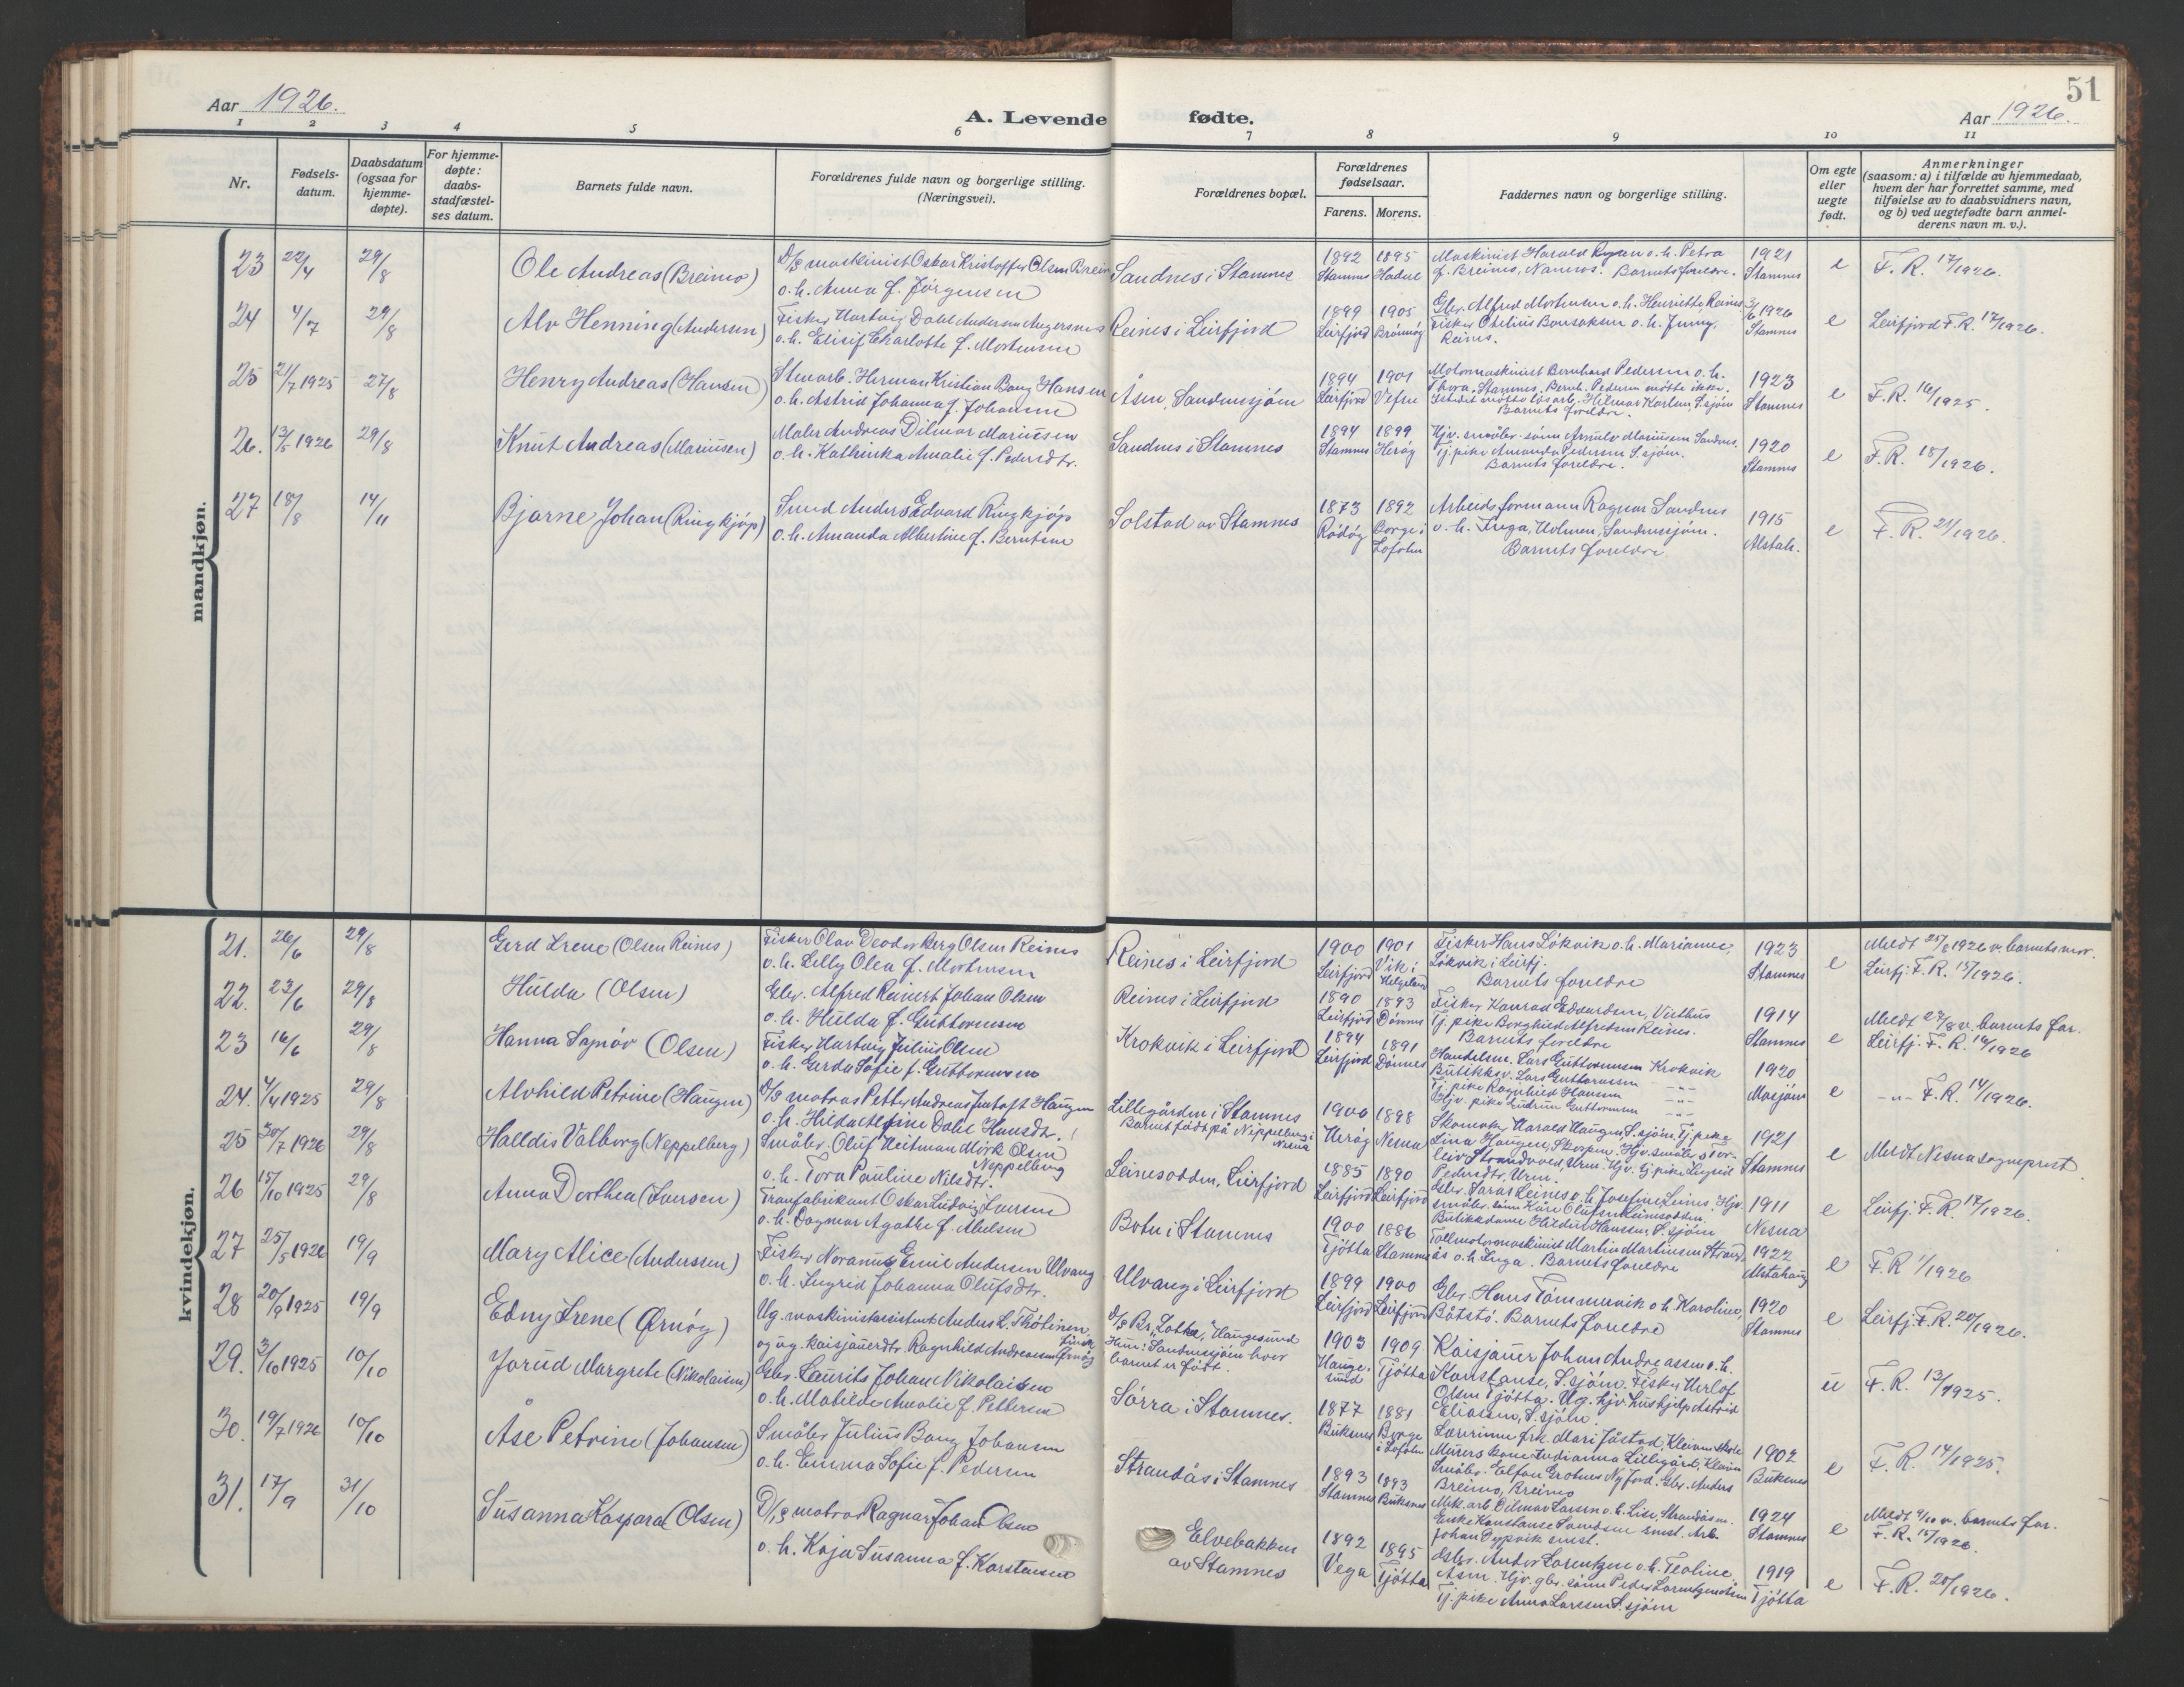 51
Aar 1926.
A. Levende fødte.
Aar 1926.
1 2 3 4 5 6 7 8 9 10 11
Nr.
Fødsels-
datum.
Daabsdatum
(ogsaa for
hjemme-
døpte).
For hjemme-
døpte:
daabs-
stadfæstel-
ses datum.
Barnets fulde navn.
Forældrenes fulde navn og borgerlige stilling.
(Næringsvei).
Forældrenes bopæl.
Forældrenes
fødselsaar.
Farens. Morens.
Faddernes navn og borgerlige stilling.
Om egte
eller
uegte
født.
Anmerkninger
(saasom: a) i tilfælde av hjemmedaab,
hvem der har forrettet samme, med
tilføielse av to daabsvidners navn,
og b) ved uegtefødte barn anmel-
derens navn m. v.).
mandkjøn.
23 22/4 29/8 Ole Andreas (Breimo) D/S maskinist Oskar Kristoffer Olsen Breimo
o. h. Anna f. Jørgensen
Sandnes i Stamnes 1892 Stamnes 1895 Maskinist Harald o. h. Petra
f. Breimo, Namsos. Barnets foreldre. 1921 Stamnes e F. R. 17/1926.
24 4/7 29/8 Alv Henning (Andersen) Fisker Hartvig Dahl Andersen Angersnes
o. h. Elisif Charlotte f. Mortensen
Reines i Leirfjord 1899 Leirfjord 1905 Brønnøy Gbr. Alfred Mortensen o. h. Henriette Reines
Fisker Othelius Bonsaksen o. h. Jenny,
Reines. 3/6 1926 Stamnes e Leirfjord F. R. 17/1926.
25 21/7 1925 27/8 Henry Andreas (Hansen) Stenarb. Herman Kristian Bang Hansen
o. h. Astrid Johanna f. Johansen
Åsen, Sandnessjøen 1894 Leirfjord 1901 Vefsn Motormaskinist Bernhard Pedersen o. h.
Thora, Stamnes. Bernh. Pedersen møtte ikke.
Istedet møtte løsarb. Hilmar Karlsen, S.sjøen
Barnets foreldre. 1923 Stamnes e F. R. 16/1925.
26. 13/5 1926 29/8 Knut Andreas (Mariussen) Maler Andreas Dilmar Mariussen
o. h. Kathinka Amalie f. Pedersdtr.
Sandnes i Stamnes 1894 Stamnes 1899 Herøy Hjv. småbr. sønn Arnulv Mariussen Sandnes.
Tj. pike Amanda Pedersen S.sjøen.
Barnets foreldre. 1920 Stamnes e F. R. 18/1926.
27 18/8 14/11 Bjarne Johan (Ringkjøp) Smed Anders Edvard Ringkjøp
o. h. Amanda Albertine f. Berntsen
Solstad av Stamnes 1873 Rødøy 1892 Borge i Lofoten Arbeidsformann Ragnar Sandnes
o. h. Inga, Holmen, Sandnessjøen.
Barnets foreldre 1915 Alstah. e F. R. 21/1926.
kvindekjøn.
21. 26/6 29/8 Gerd Irene (Olsen Reines) Fisker Olav Deodor Berg Olsen Reines
o. h. Lilly Olea f. Mortensen
Reines i Leirfjord 1900 Leirfjord 1901 Vik i Helgeland Fisker Hans Løkvik o. h. Marianne,
Løkvik i Leirfj.
Barnets foreldre 1923 Stamnes e Meldt 25/8 1926 v. barnets mor.
Leirfj. F. R. 15/1926.
22. 23/6 29/8 Hulda (Olsen) Gbr. Alfred Reinert Johan Olsen
o. h. Hulda f. Guttormsen
Reines i Leirfjord 1890 Leirfjord 1893 Dønnes Fisker Konrad Edvardsen,
Tj. pike Borghild Alfredsen Reines.
Barnets foreldre 1914 Stamnes e Meldt 27/8 v. barnets far.
Leirfj. F. R. 16/1926
23 16/6 29/8 Hanna Synøv (Olsen) Fisker Hartvig Julius Olsen
o. h. Gerda Sofie f. Guttormsen
Krokvik i Leirfjord 1894 Leirfjord 1891 Dønnes Handelsm. Lars Guttormsen Krokvik
Butikkbv. Lars Guttormsen -"-
Tj. pike Ragnhild Hansen -"-
Hjv. pike Gudrun Guttormsen -"- 1920 Mosjøen e -"- F. R. 14/1926.
24. 4/4 1925 29/8 Alvhild Petrine (Haugen) D/S matros Petter Andreas Haugen
o. h. Hilda Alfine Dahl Hansdtr.
Lillegården i Stamnes
Barnet født på Neppelberg i Nesna 1900 Herøy 1898 Nesna Skomaker Harald Haugen, S.sjøen. Tj. pike
Lina Haugen, Skorpen. Hjv. småbr. s Tor-
leiv Strandved, Urm. Hjv. tj. pike Ingrid
Pedersdtr. Urm. 1921 Stamnes e Meldt Nesna sogneprest
25 30/7 1926 29/8 Halldis Valborg (Neppelberg) Småbr. Oluf Heitman Mørk Olsen
Neppelberg
o. h. Tora Pauline Nilsdtr.
Leinesodden, Leirfjord 1885 Leirfjord 1890 Leirfjord Gbr. Leines o. h. Josefine Leines, Hjv.
småbr. sønn Kåre Olufsen Leinesodden.
1911 Nesna e Leirfj. F. R. 17/1926.
26 15/10 1925 29/8 Anna Dorthea (Iversen) Tranfabrikant Oskar Ludvig Iversen
o. h. Dagmar Agathe f. Abelsen
Botn i Stamnes 1900 Tjøtta 1886 Stamnes Butikkdame Hildur Hanssen, S.sjøen
Martin Martinsen
ås o. h. Inga. Barnets foreldre 1922 Alstahaug e F. R 1/1926
27 25/5 1926 19/9 Mary Alice (Anderssen) Fisker Noranus Emil Andersen Ulvang
o. h. Ingrid Johanna Olufsdtr.
Ulvang i Leirfjord 1899 Leirfjord 1900 Leirfjord Gbr. Hans Tømmervik o. h. Karoline,
Båtstø. Barnets foreldre 1920 Stamnes e Leirfj. F. R. 20/1926.
28 20/9 1925 19/9 Edny Irene (Ørnøy) Ug. maskinistassistent Anders L. Thøtinen
og ug. kaisjauerdtr. Ragnhild Andreassen Ørnøy
D/S Br. "Lotte," Haugesund
Hun: Sandnessjøen hvor
barnet er født. 1903 Haugesund 1909 Tjøtta Kaisjauer Johan Andreassen o. h.
Konstanse, S.sjøen. Fisker Herlof
Olsen Tjøtta. Ug. hjv. hushjelp Astrid
Eliassen, S.sjøen. u F. R. 13/1925.
29. 3/10 1925 10/10 Jorud Margrete (Nikolaisen) Gbr. Laurits Johan Nikolaisen
o. h. Matilde Amalie f. Pettersen
Sørra i Stamnes. 1877 Buksnes 1881 Borge i Lofoten Lærerinne frk. Mari Jåstad, Kleiven skole
Murers kone Indianna Lillegård, Kleiven
Småbr. Elfon Grotnes Nyjord. Gbr. Anders
Breimo, Breimo 1902 Buksnes e F. R. 14/1925.
30. 19/7 1926 10/10 Åse Petrine (Johansen) Småbr Julius Bang Johansen
o. h. Emma Sofie f. Pedersen
Strandås i Stamnes 1893 Stamnes 1893 Buksnes Mek. arb. Dilmar Larsen o. h. Lise, Strandåsen.
Enke Konstanse Smst. Arb.
Johan Dypvik smst. 1924 Stamnes e Meldt v. barnets far.
F. R. 15/1926.
31. 17/9 31/10 Susanna Kaspara (Olsen) D/S matros Ragnar Johan Olsen
o. h. Kaja Susanna f. Karstensen
Elvebakken
av Stamnes 1892 Vega 1895 Tjøtta Gbr. Andor Lorentzen o. h. Teoline,
Åsen. Hjv. gbr. sønn Peder Lorentzen Åsen
Tj. pike Anna Larssen S.sjøen 1919 Tjøtta e F. R. 20/1926.